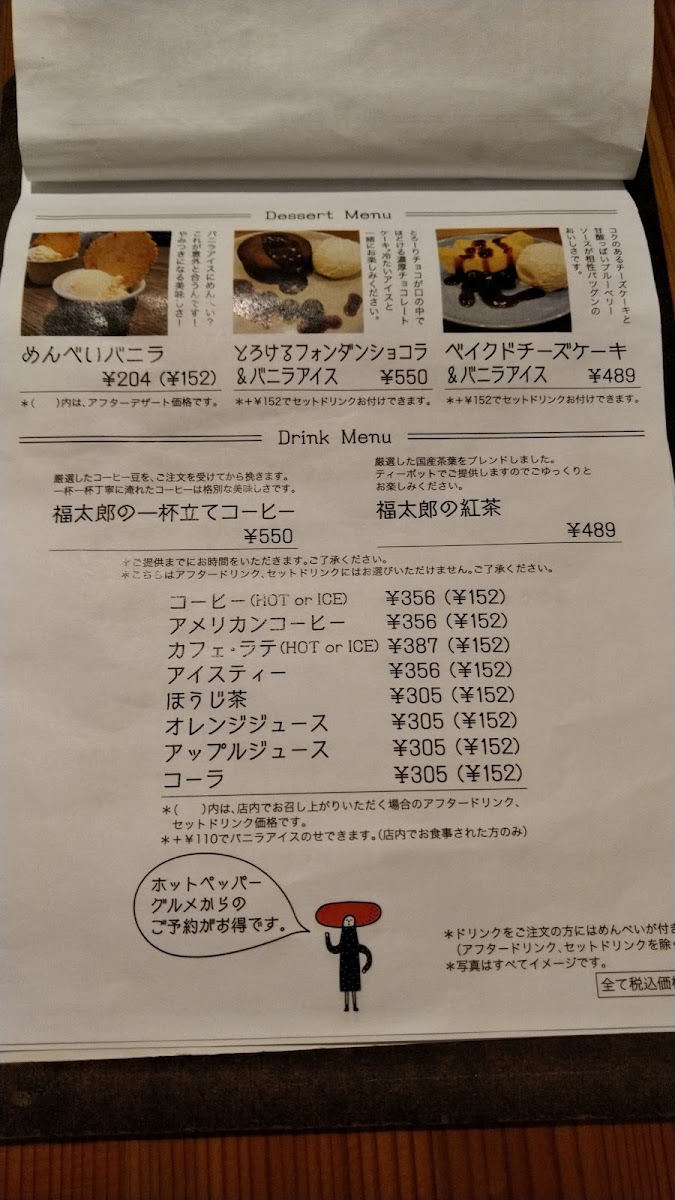 Dessert Menu
バニラアイスにめんべい？
これが意外と合うんです！
やみつきになる美味しさ！
めんべいバニラ
¥204 (¥152)
＊(　)内は、アフターデザート価格です。
とろーりチョコが口の中で
ほどける濃厚チョコレート
ケーキ。冷たいアイスと
一緒にお楽しみください。
とろけるフォンダンショコラ
&バニラアイス ¥550
＊+¥152でセットドリンクお付けできます。
コクのあるチーズケーキと
甘酸っぱいブルーベリー
ソースが相性バツグンの
おいしさです。
ベイクドチーズケーキ
&バニラアイス ¥489
＊+¥152でセットドリンクお付けできます。
Drink Menu
厳選したコーヒー豆を、ご注文を受けてから挽きます。
一杯一杯丁寧に淹れたコーヒーは格別な美味しさです。
福太郎の一杯立てコーヒー
¥550
厳選した国産茶葉をブレンドしました。
ティーポットでご提供しますのでごゆっくりと
お楽しみください。
福太郎の紅茶
¥489
＊ご提供までにお時間をいただきます。ご了承ください。
＊こちらはアフタードリンク、セットドリンクにはお選びいただけません。ご了承ください。
コーヒー(HOT or ICE) ¥356 (¥152)
アメリカンコーヒー ¥356 (¥152)
カフェ・ラテ(HOT or ICE) ¥387 (¥152)
アイスティー ¥356 (¥152)
ほうじ茶 ¥305 (¥152)
オレンジジュース ¥305 (¥152)
アップルジュース ¥305 (¥152)
コーラ ¥305 (¥152)
＊(　)内は、店内でお召し上がりいただく場合のアフタードリンク、
セットドリンク価格です。
＊+¥110でバニラアイスのせできます。(店内でお食事された方のみ)
ホットペッパー
グルメからの
ご予約がお得です。
＊ドリンクをご注文の方にはめんべいが付き
(アフタードリンク、セットドリンクを除く
＊写真はすべてイメージです。
全て税込価格